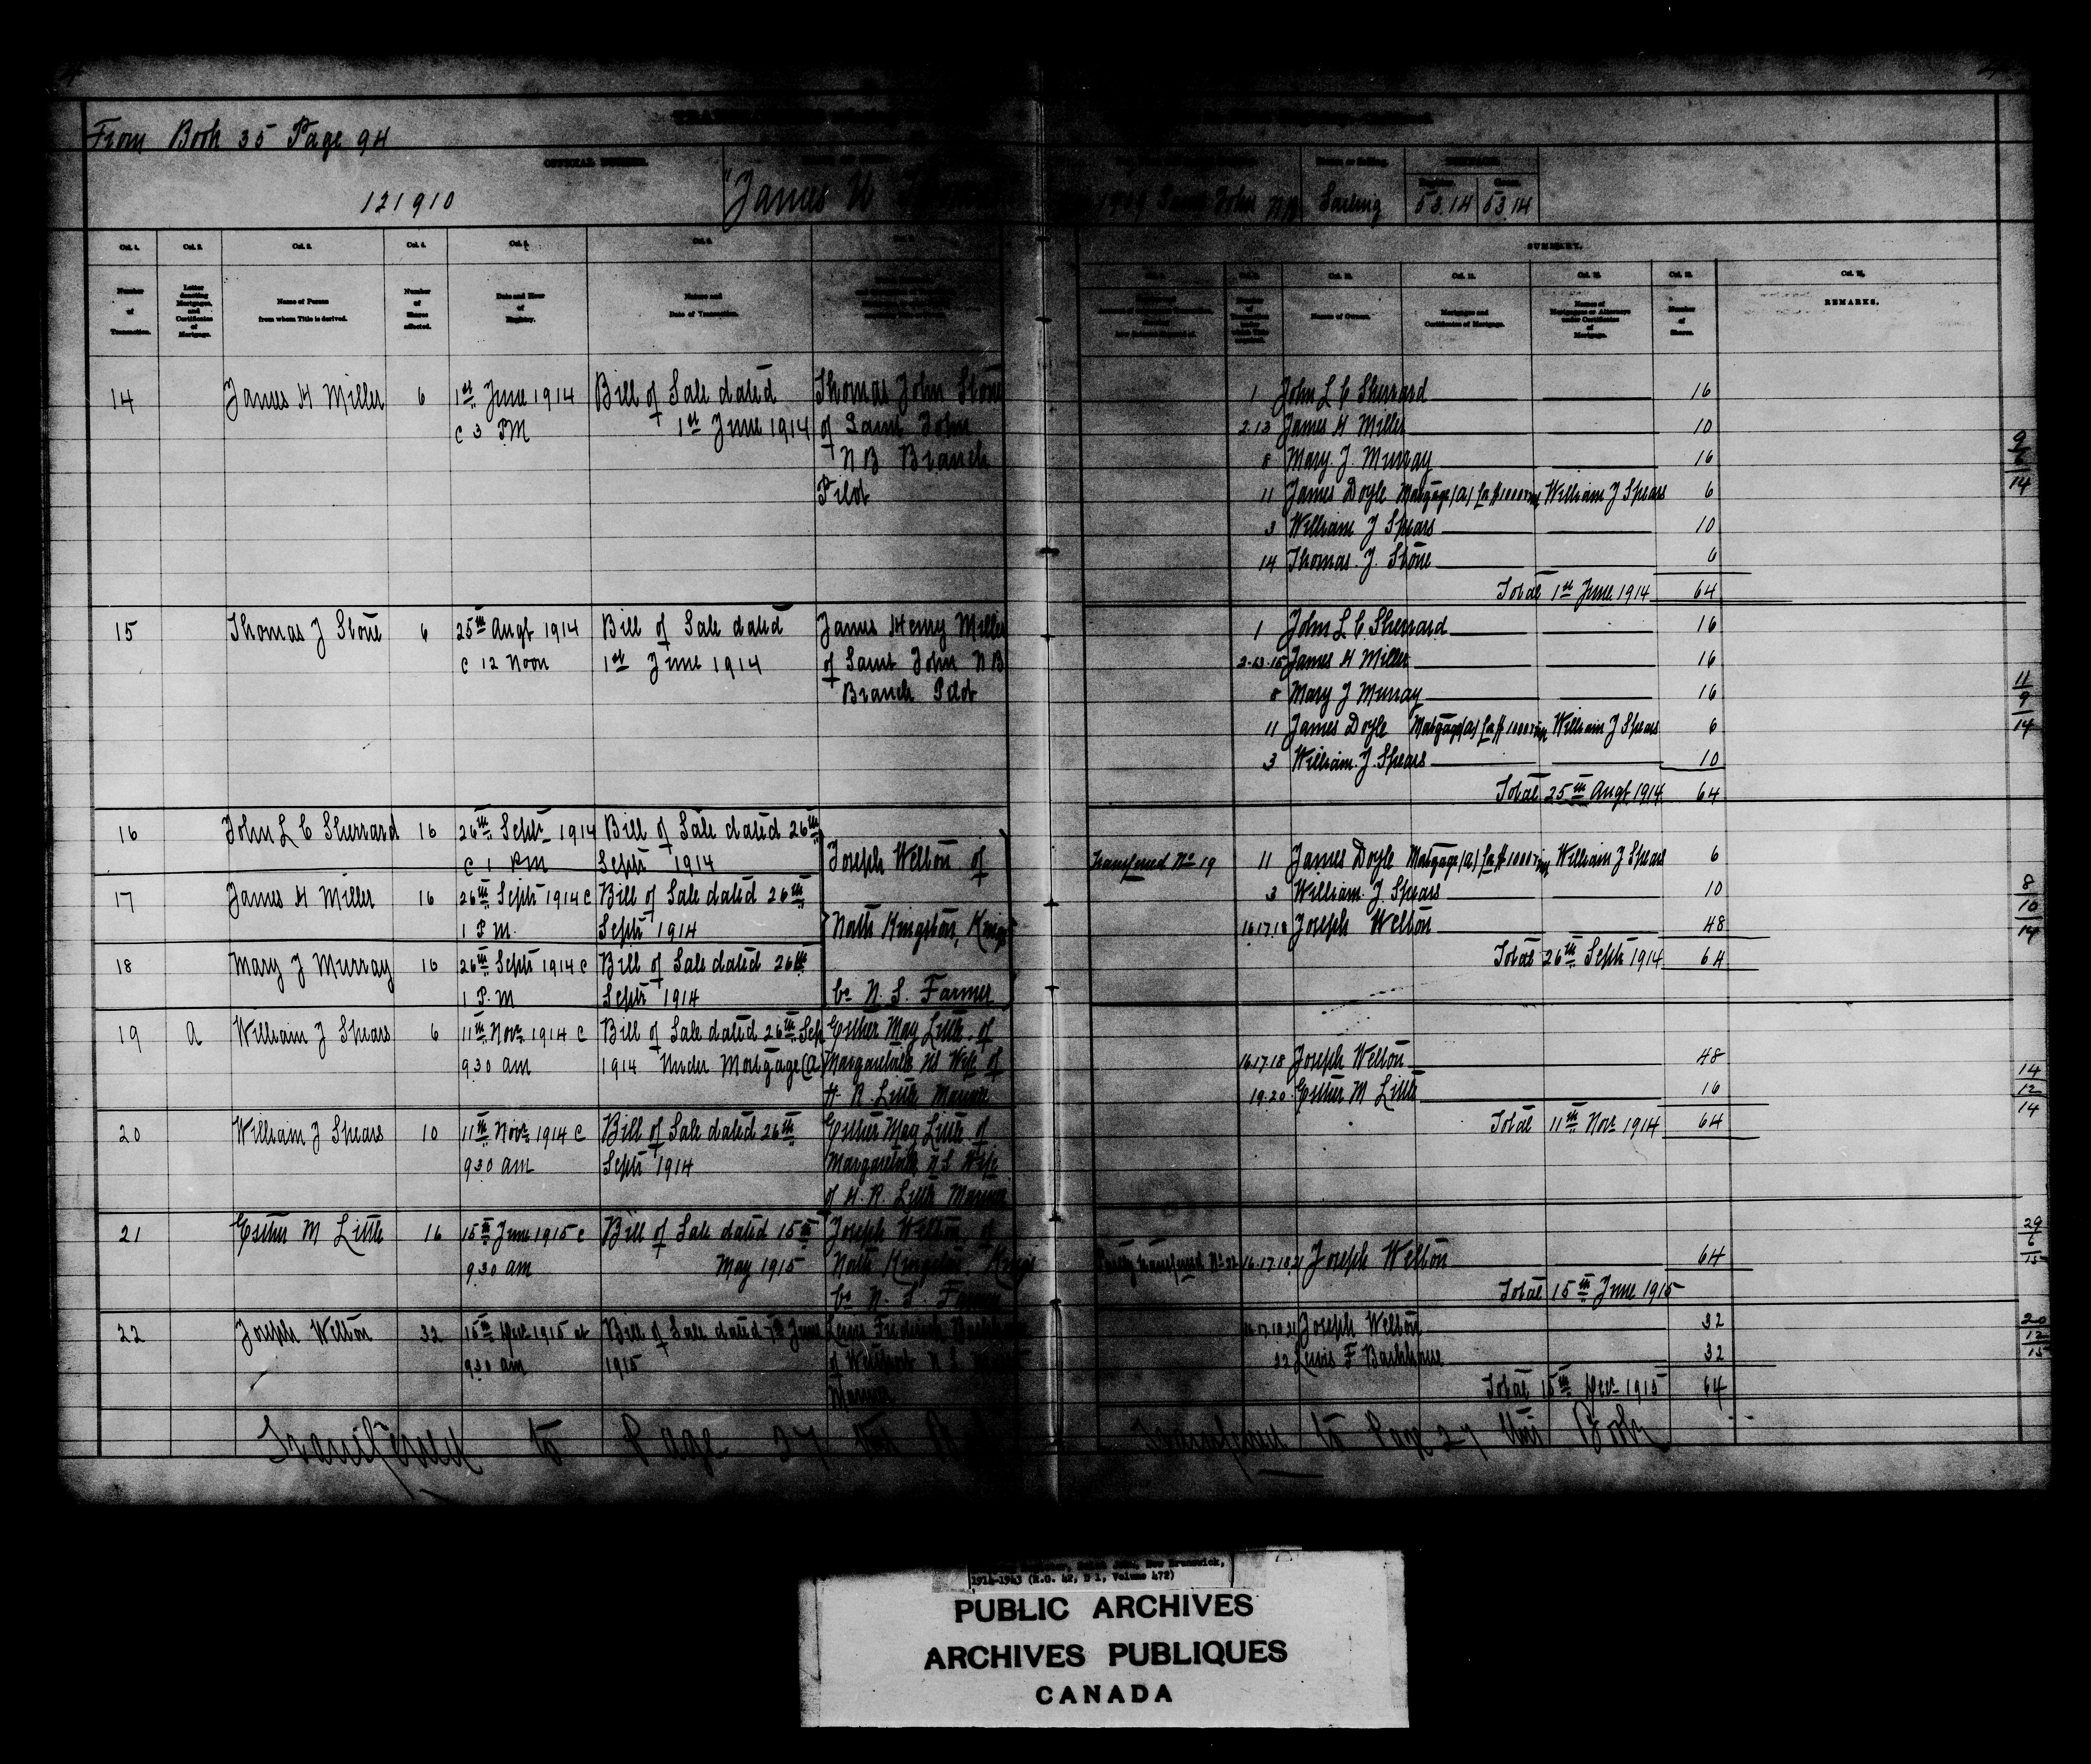 From Book 35 Page 94
OFFICIAL NUMBER.
121910
"James U
1909 Saint John NB
Sailing
53.14 53.14
SUMMARY.
Col. 1. Col. 2. Col. 3. Col. 4. Col. 5. Col. 6.
Col. 10. Col. 11. Col. 12. Col. 13.
Number of Transaction.
Letter denoting Mortgages, and Certificates of Mortgage.
Name of Person from whom Title is derived.
Number of Shares affected.
Date and Hour of Registry.
Nature and Date of Transaction.
Names of Owners.
Mortgages and Certificates of Mortgage.
Names of Mortgagees or Attorneys under Certificates of Mortgage.
Number of Shares.
REMARKS.
14 James H Miller 6 1st June 1914 Bill of Sale dated Thomas John Stone
@ 3 PM 1st June 1914 of Saint John
N B Branch
Pilot
1 John L C Sherrard 16
2.13 James H Miller 10
8 Mary. J. Murray 16
11 James Doyle Mortgage (A) for $1000 William J Spears 6
3 William J Spears 10
14 Thomas. J. Stone 6
Total 1st June 1914 64
9
6
14
15 Thomas J Stone 6 25th Augt 1914 Bill of Sale dated James Henry Miller
@ 12 Noon 1st June 1914 of Saint John N B
Branch Pilot
1 John L C Sherrard 16
2.13.15 James H Miller 16
8 Mary J Murray 16
11 James Doyle Mortgage (A) for $1000 William J Spears 6
3 William. J. Spears 10
Total 25th Augt 1914 64
11
9
14
16 John L C Sherrard 16 26th Septr 1914 Bill of Sale dated 26th
@ 1 PM Septr 1914
Joseph Welton of
17 James H Miller 16 26th Septr 1914 @ Bill of Sale dated 26th
1 P.M. Septr 1914
North Kingston, Kings
18 Mary J Murray 16 26th Septr 1914 @ Bill of Sale dated 26th
1 P.M Septr 1914
Co N. S. Farmer
Transferred No 19 11 James Doyle Mortgage (A) for $1000 William J Spears 6
3 William. J. Spears 10
16.17.18 Joseph Welton 48
Total 26th Septr 1914 64
8
10
14
19 A William J Spears 6 11th Novr 1914 @ Bill of Sale dated 26th Sep Esther May Little. of
9.30 am 1914 Under Mortgage (A) Margaretville NS Wife of
H. R. Little Mariner
16.17.18 Joseph Welton 48
19.20. Esther M Little 16
Total 11th Novr 1914 64
14
12
14
20 William J Spears 10 11th Novr 1914 @ Bill of Sale dated 26th Esther May Little of
9.30 am Septr 1914 Margaretville N S Wife
of H. R. Little Mariner
21 Esther M Little 16 15th June 1915 @ Bill of Sale dated 15th Joseph Welton of
9.30 am May 1915 North Kingston, Kings
Co N. S. Farmer
Partly transferred No 22 16.17.18.21 Joseph Welton 64
Total 15th June 1915
29
6
15
22 Joseph Welton 32 15th Decr 1915 at Bill of Sale dated 7th June
9.30 am 1915
Mariner
16.17.18.21 Joseph Welton 32
22 Lewis F 32
Total 15th Decr 1915 64
20
12
15
Transferred to Page 27 this
Transferred to Page 27 this Book
1914-1943 (R.G. 42, D 1, Volume 472)
PUBLIC ARCHIVES
ARCHIVES PUBLIQUES
CANADA